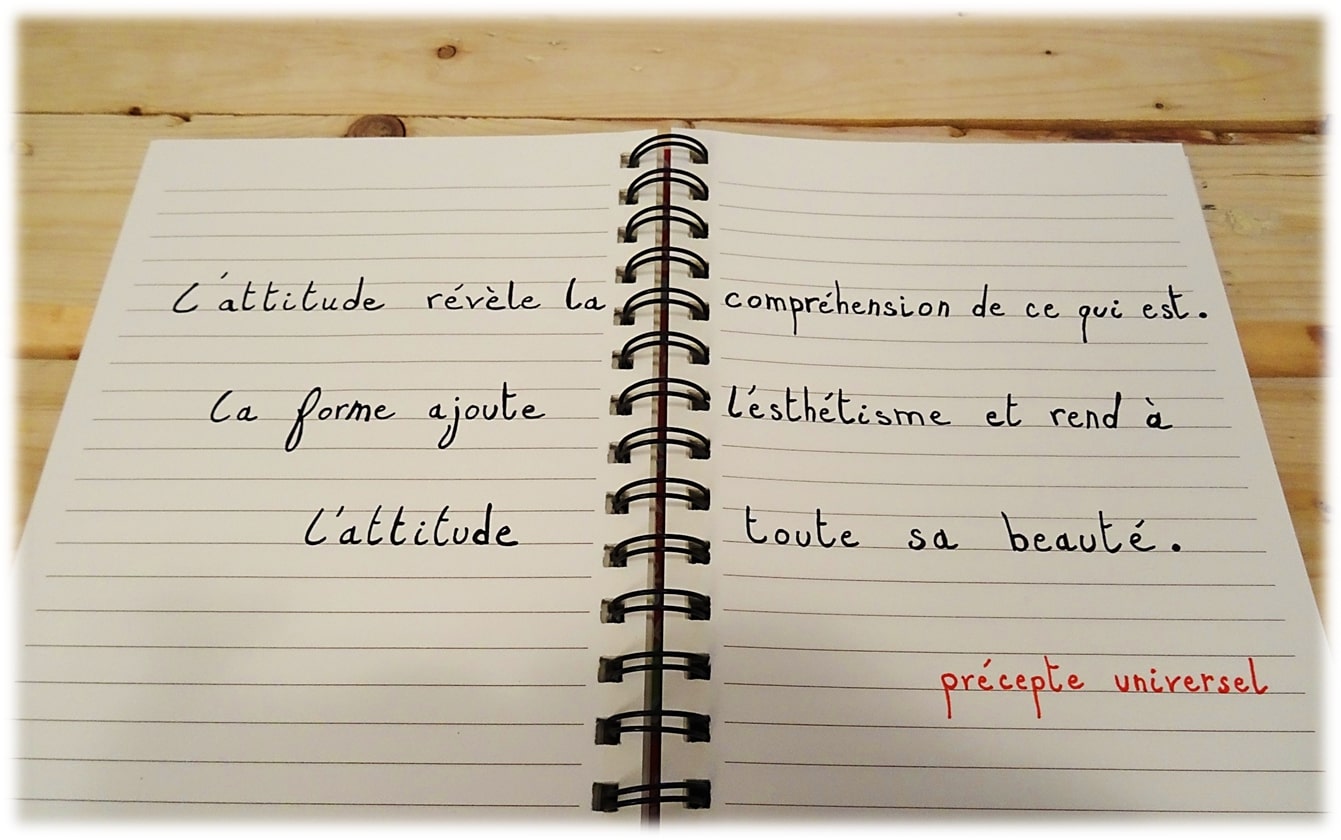 L'attitude révèle la compréhension de ce qui est.
La forme ajoute l'ésthétisme et rend à
l'attitude toute sa beauté.
précepte universel